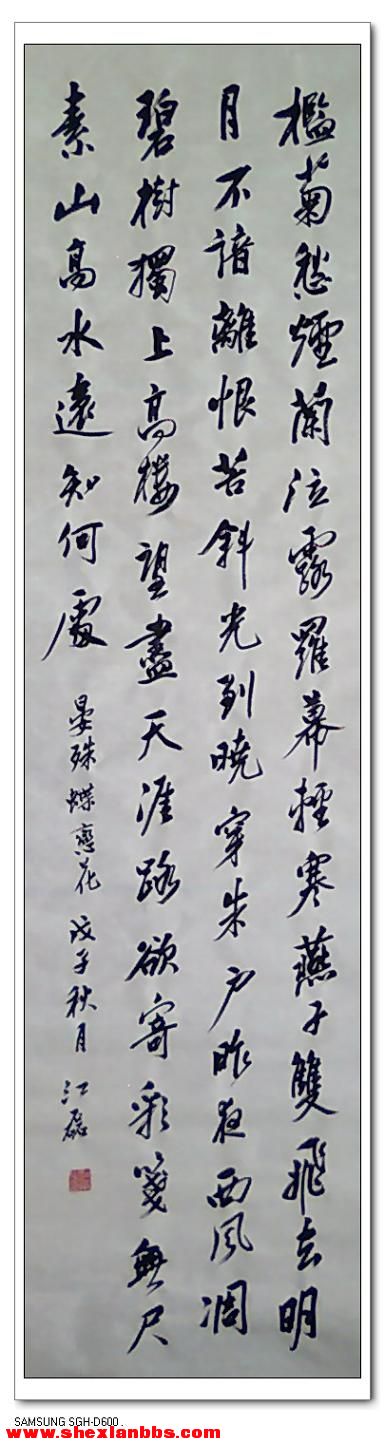 檻菊愁煙蘭泣露羅幕輕寒燕子雙飛去明
月不諳離恨苦斜光到曉穿朱户昨夜西風凋
碧樹獨上高樓望盡天涯路欲寄彩箋無尺
素山高水遠知何處 晏殊蝶戀花 戊子秋月 江磊
SAMSUNG SGH-D600 .
www.shexianbbs.com